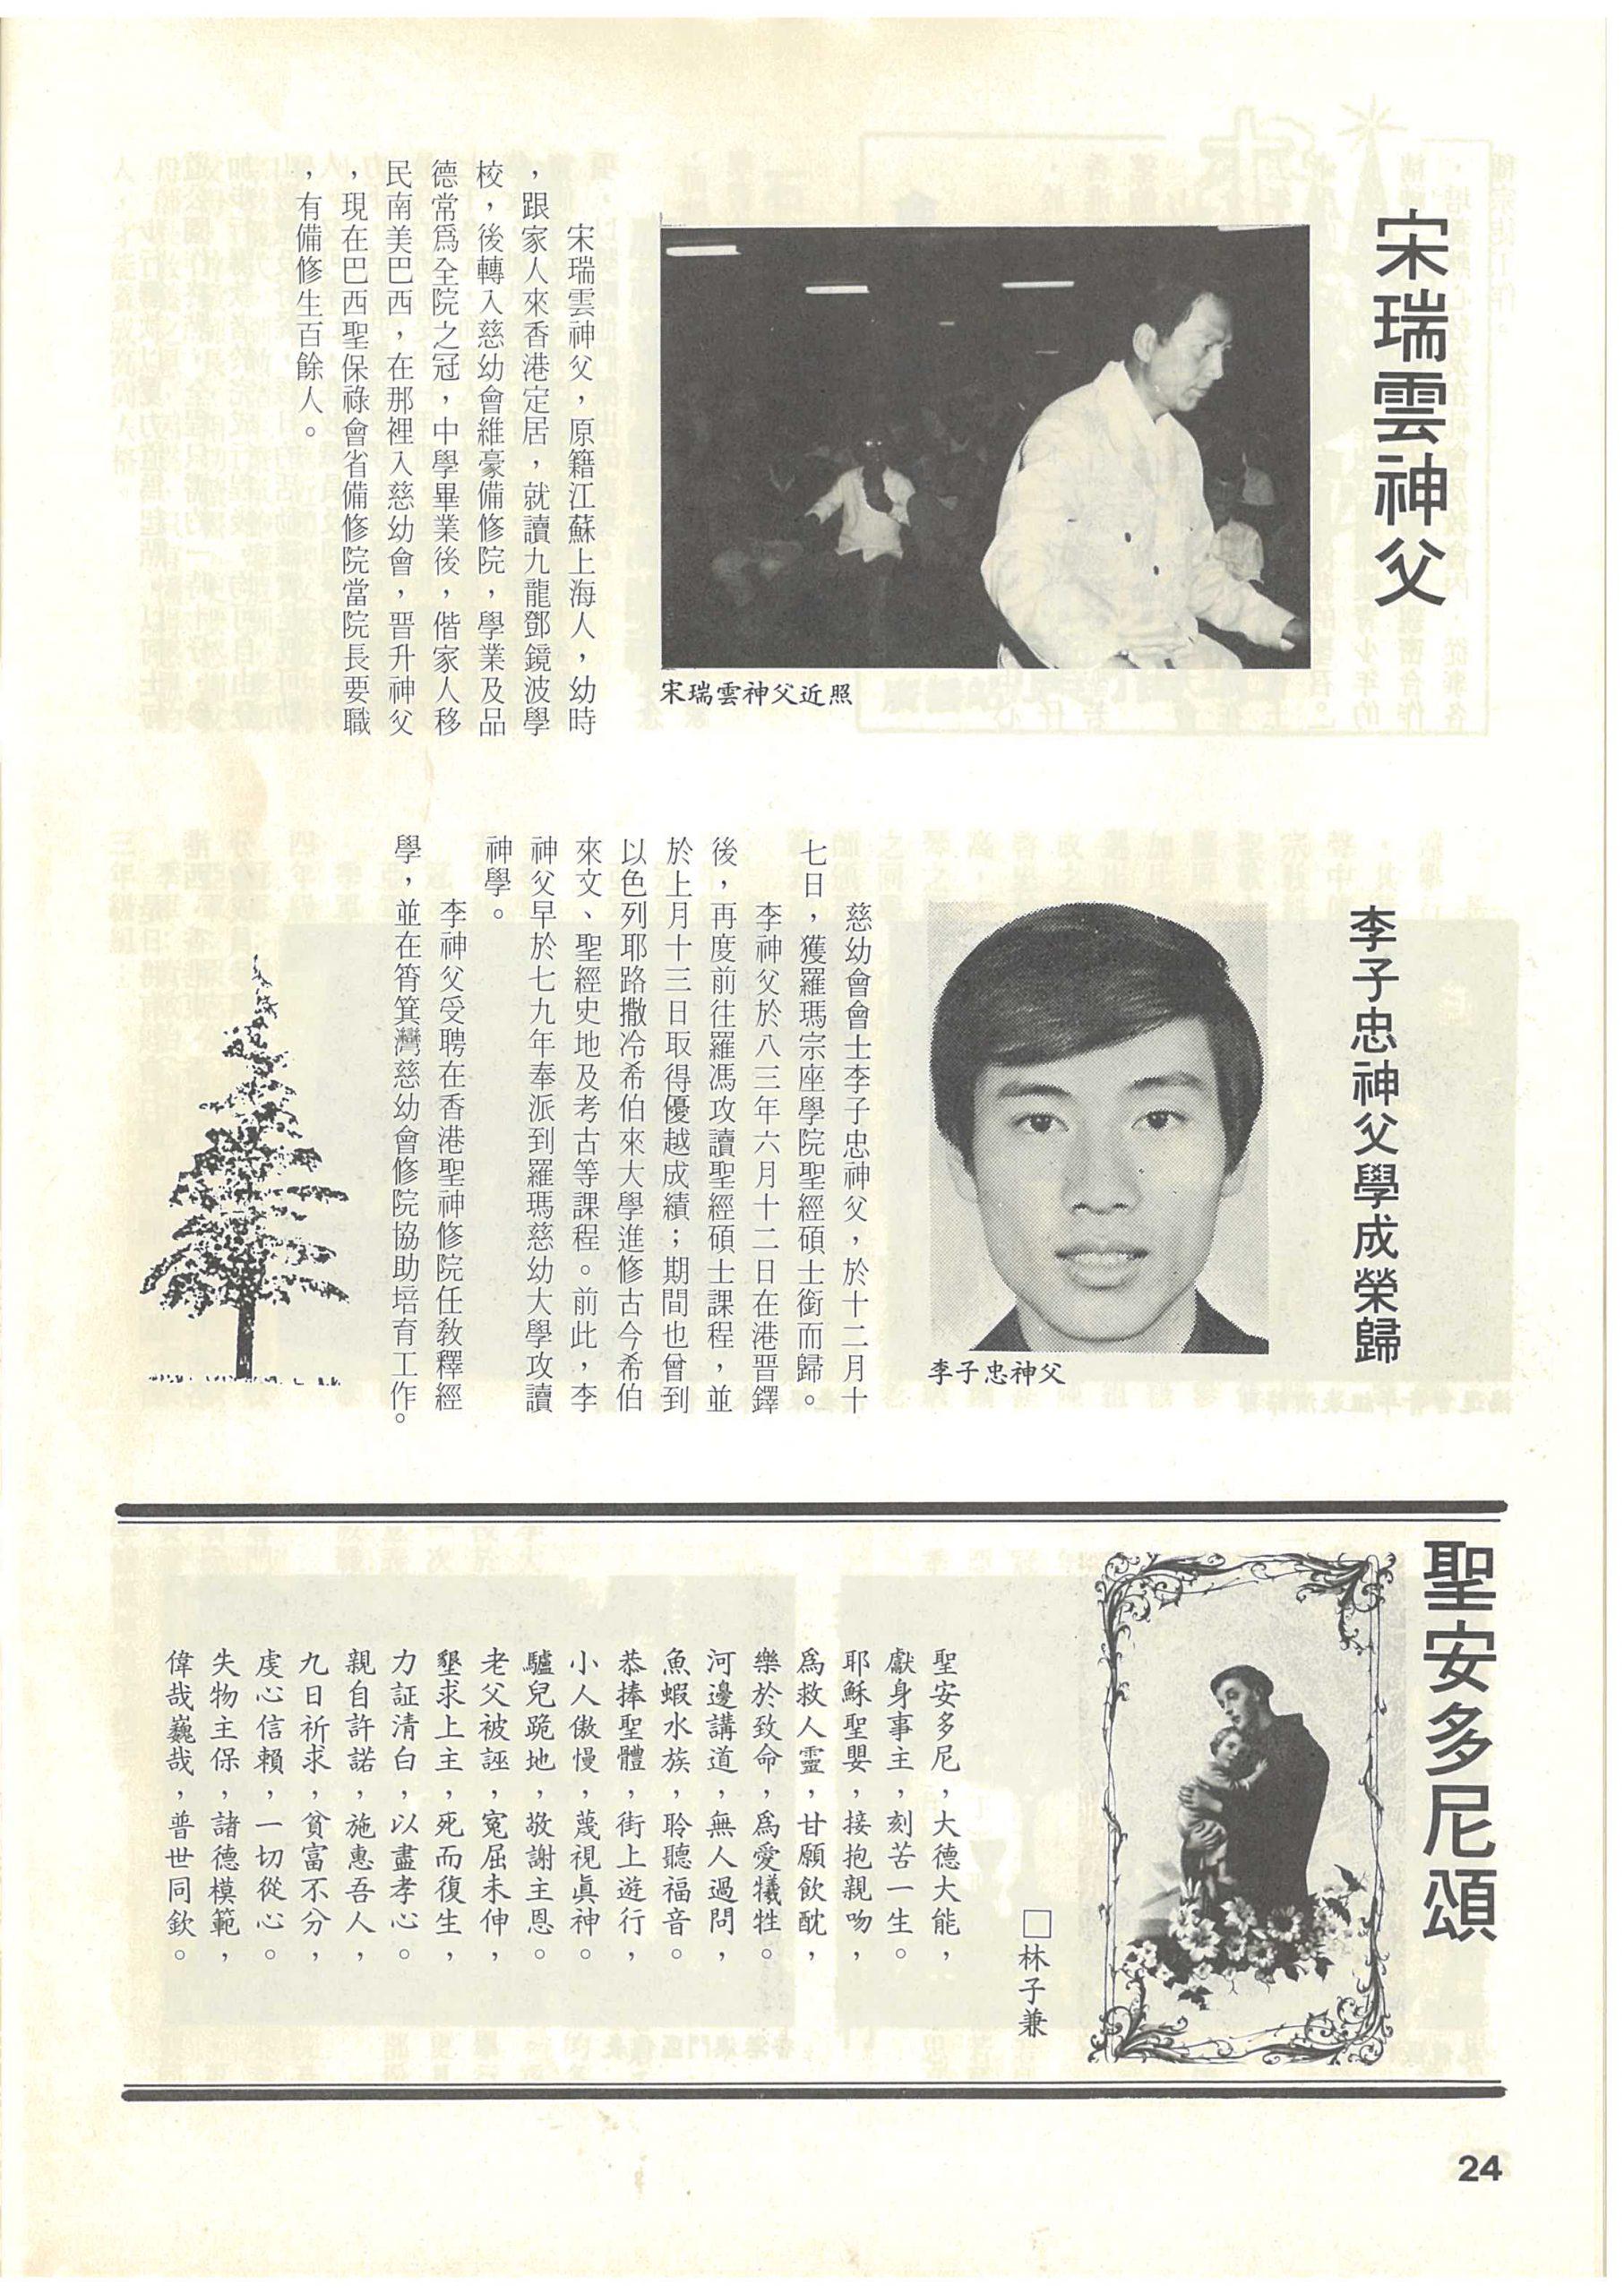 宋瑞雲神父
宋瑞雲神父近照
宋瑞雲神父，原籍江蘇上海人，幼時
，跟家人來香港定居，就讀九龍鄧鏡波學
校，後轉入慈幼會維豪備修院，學業及品
德常爲全院之冠，中學畢業後，偕家人移
民南美巴西，在那裡入慈幼會，晋升神父
，現在巴西聖保祿會省備修院當院長要職
，有備修生百餘人。
李子忠神父學成榮歸
李子忠神父
慈幼會會士李子忠神父，於十二月十
七日，獲羅瑪宗座學院聖經碩士銜而歸。
李神父於八三年六月十二日在港晋鐸
後，再度前往羅馮攻讀聖經碩士課程，並
於上月十三日取得優越成績；期間也曾到
以色列耶路撒冷希伯來大學進修古今希伯
來文、聖經史地及考古等課程。前此，李
神父早於七九年奉派到羅瑪慈幼大學攻讀
神學。
李神父受聘在香港聖神修院任教釋經
學，並在筲箕灣慈幼會修院協助培育工作。
聖安多尼頌
□林子兼
聖安多尼，大德大能，
獻身事主，刻苦一生。
耶穌聖嬰，接抱親吻，
爲救人靈，甘願飲酖，
樂於致命，爲愛犧牲。
河邊講道，無人過問，
魚蝦水族，聆聽福音。
恭捧聖體，街上遊行，
小人傲慢，蔑視眞神。
驢兒跪地，敬謝主恩。
老父被誣，冤屈未伸，
墾求上主，死而復生，
力証清白，以盡孝心。
親自許諾，施惠吾人，
九日祈求，貧富不分，
虔心信賴，一切從心。
失物主保，諸德模範，
偉哉巍哉，普世同欽。
24